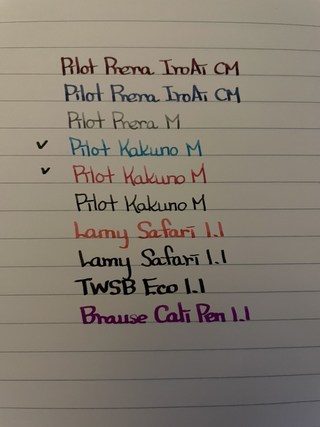 Pilot Prera IroAi CM
Pilot Prera IroAi CM
Pilot Prera M
✓ Pilot Kakuno M
✓ Pilot Kakuno M
Pilot Kakuno M
Lamy Safari 1.1
Lamy Safari 1.1
TWSB Eco 1.1
Brause Cali Pen 1.1